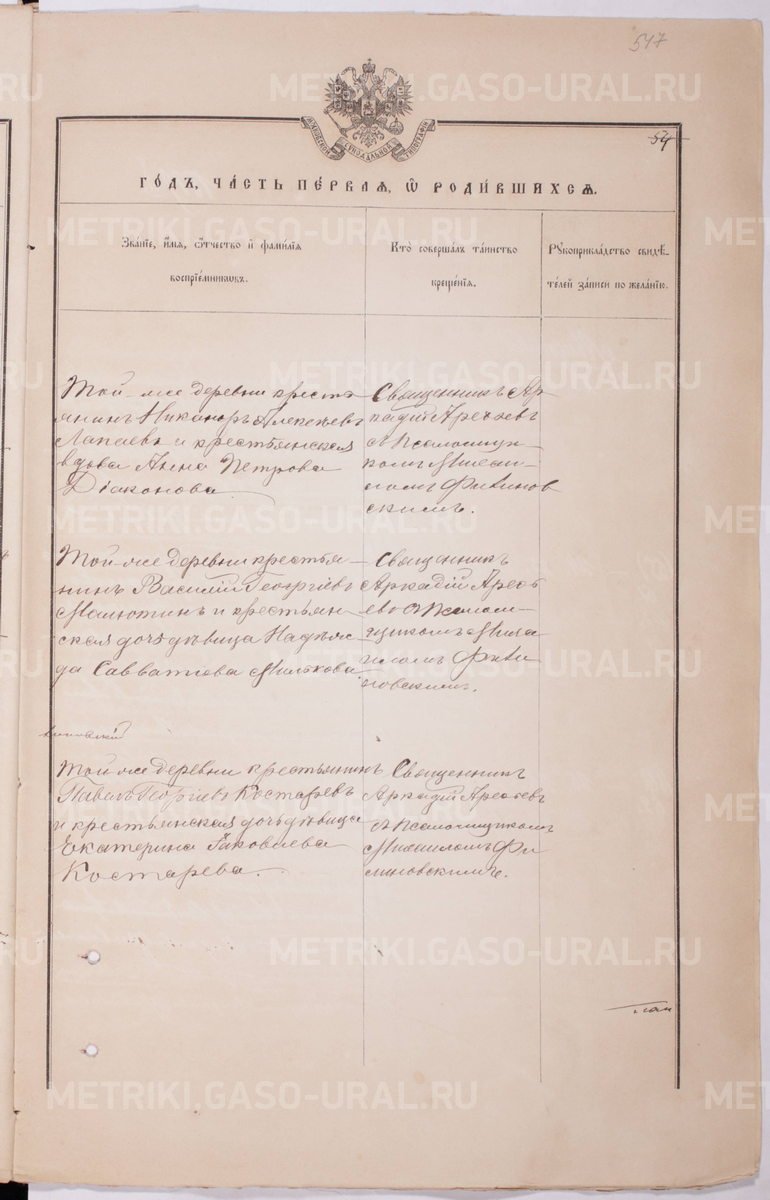 547
54
МОСКОВСКОЙ СѴНОДАЛЬНОЙ ТИПОГРАФІИ
ГО́ДЪ, ЧА́СТЬ ПЕ́РВАѦ, Ѡ҆ РОДИ́ВШИХСѦ.
Зва́нїе, и҆́мѧ, ѻ҆́тчество и҆ фами́лїѧ
воспрїе́мникѡвъ.
Кто̀ соверша́лъ та́инство
креще́нїѧ.
Рꙋкоприкла́дство свидѣ́-
телей за́писи по жела́нїю.
Той-же деревни кресть-
янинъ Никаноръ Алексѣевъ
Лапаевъ и крестьянская
вдова Анна Петрова
Діаконова.
Священникъ Ар
кадій Арефьевъ
съ Псаломщи-
комъ Михаи-
ломъ Фи
скимъ.
Той-же деревни крестья-
нинъ Василій Георгіевъ
Малютинъ и крестьян-
ская дочь дѣвица Надѣж-
да Савватіова Милькова.
Священникъ
Аркадій Арефь
евъ съ Псалом-
щикомъ Миха
иломъ Фи
новскимъ.
Той-же деревни крестьянинъ
Павелъ Георгіевъ Костаревъ
и крестьянская дочь дѣвица
Екатерина Іаковлева
Костарева.
Священникъ
Аркадій Арефьевъ
съ Псаломщикомъ
Михаиломъ Фи
новскимъ.
METRIKI.GASO-URAL.RU